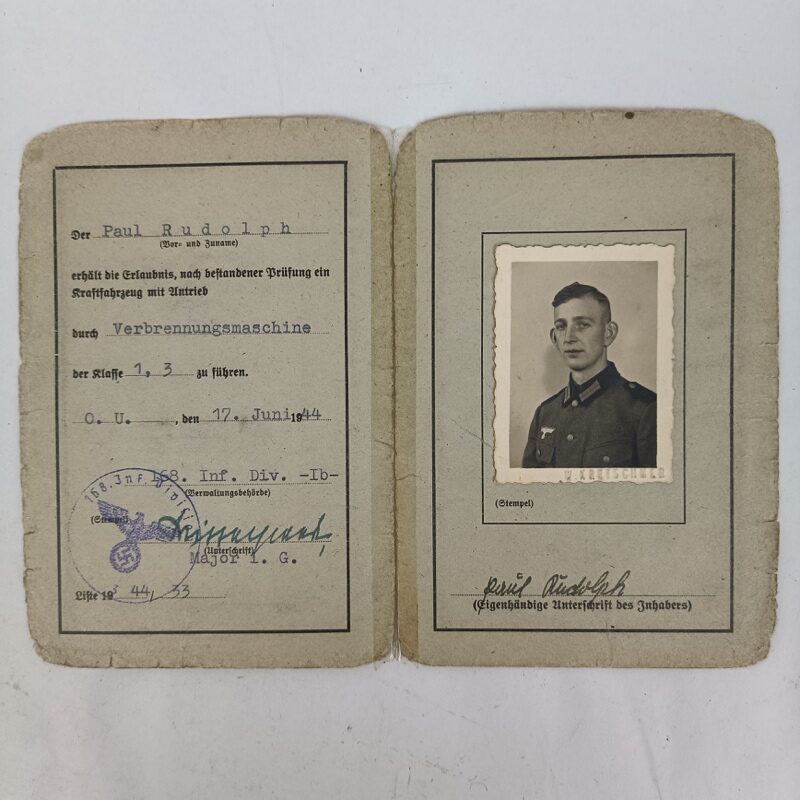 Der Paul Rudolph
(Vor- und Zuname)
erhält die Erlaubnis, nach bestandener Prüfung ein
Kraftfahrzeug mit Antrieb
durch Verbrennungsmaschine
der Klasse 1, 3 zu führen.
O. U. , den 17. Juni 1944
168. Inf. Div. -Ib-
(Verwaltungsbehörde)
168. Inf. Divisi
(Stempel)
(Unterschrift)
Major i. G.
Liste 19 44, 33
W. KRETSCHMER
(Stempel)
Paul Rudolph
(Eigenhändige Unterschrift des Inhabers)